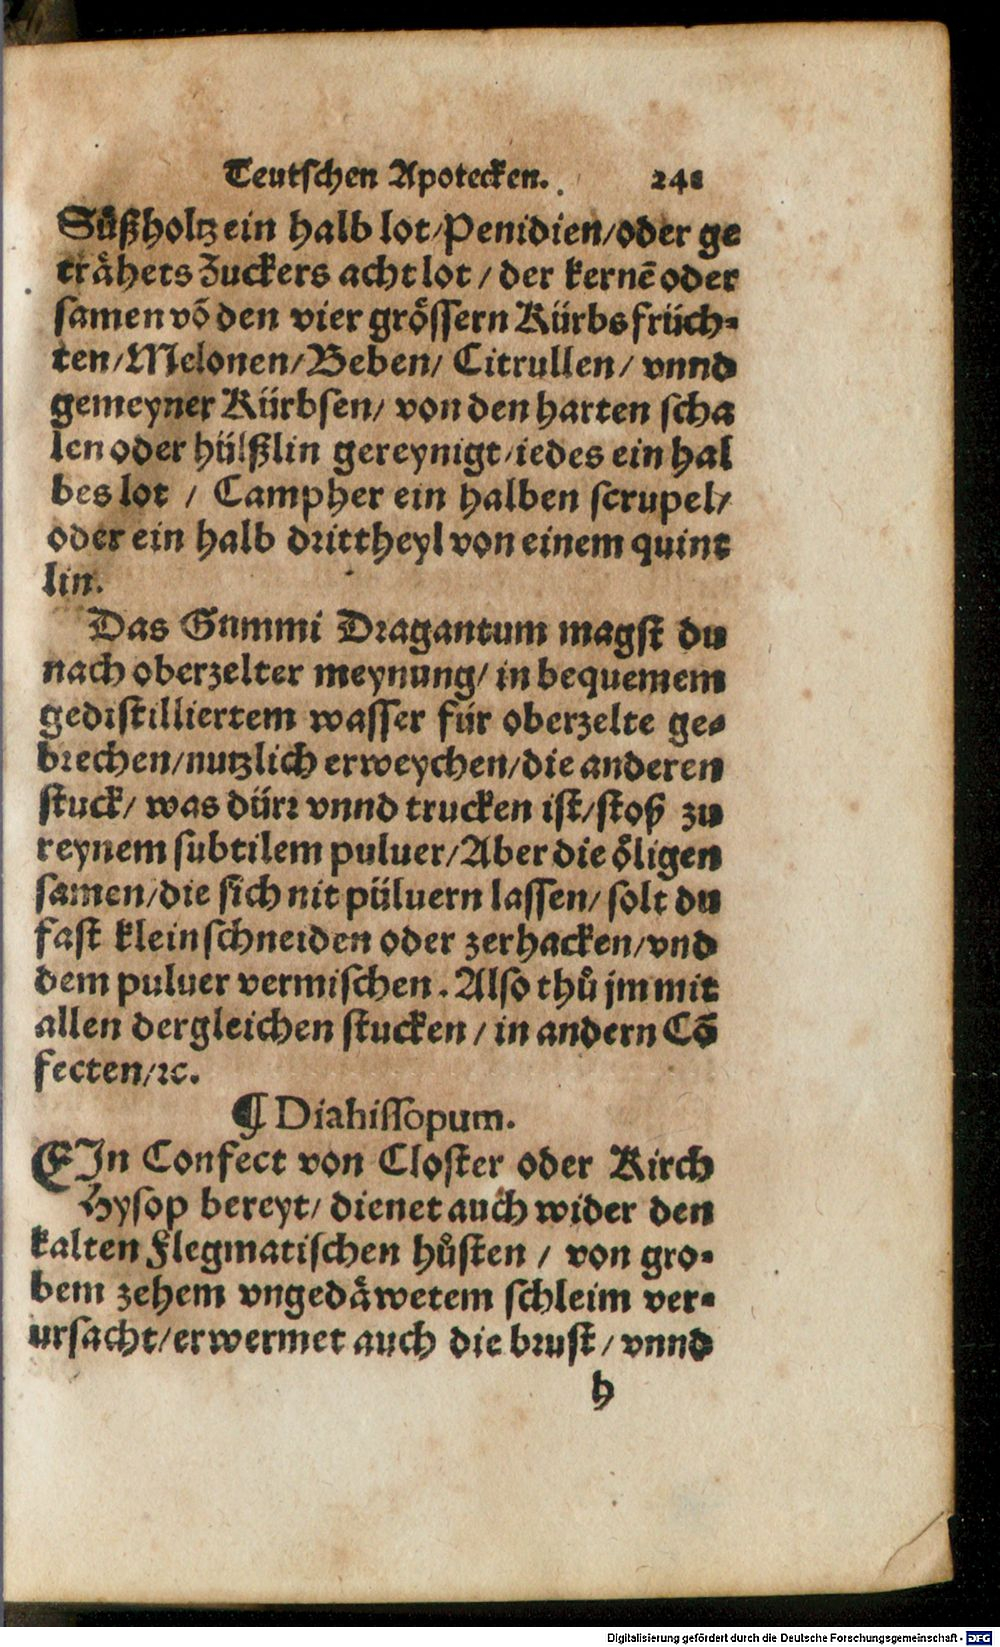 Teutschen Apotecken. 241
Suͤßholtz ein halb lot/Penidien/oder ge
traͤhets Zuckers acht lot / der kernē oder
samen võ den vier groͤssern Kürbs früch-
ten/Melonen/Beben/ Citrullen/ vnnd
gemeyner Kürbsen/ von den harten scha
len oder hülßlin gereynigt/iedes ein hal
bes lot / Campher ein halben scrupel/
oder ein halb drittheyl von einem quint
lin.
Das Gummi Dragantum magst du
nach oberzelter meynung/ in bequemem
gedistilliertem wasser für oberzelte ge-
brechen/nutzlich erweychen/die anderen
stuck/ was dürr vnnd trucken ist/stoß zu
reynem subtilem puluer/Aber die oͤligen
samen/die sich nit püluern lassen/ solt du
fast klein schneiden oder zerhacken/vnd
dem puluer vermischen. Also thuͦ jm mit
allen dergleichen stucken / in andern Cõ
fecten/ꝛc.
¶ Diahissopum.
EIn Confect von Closter oder Kirch
Hysop bereyt/ dienet auch wider den
kalten Flegmatischen huͦsten / von gro-
bem zehem vngedaͤwetem schleim ver-
ursacht/erwermet auch die brust / vnnd
h
Digitalisierung gefördert durch die Deutsche Forschungsgemeinschaft - DFG